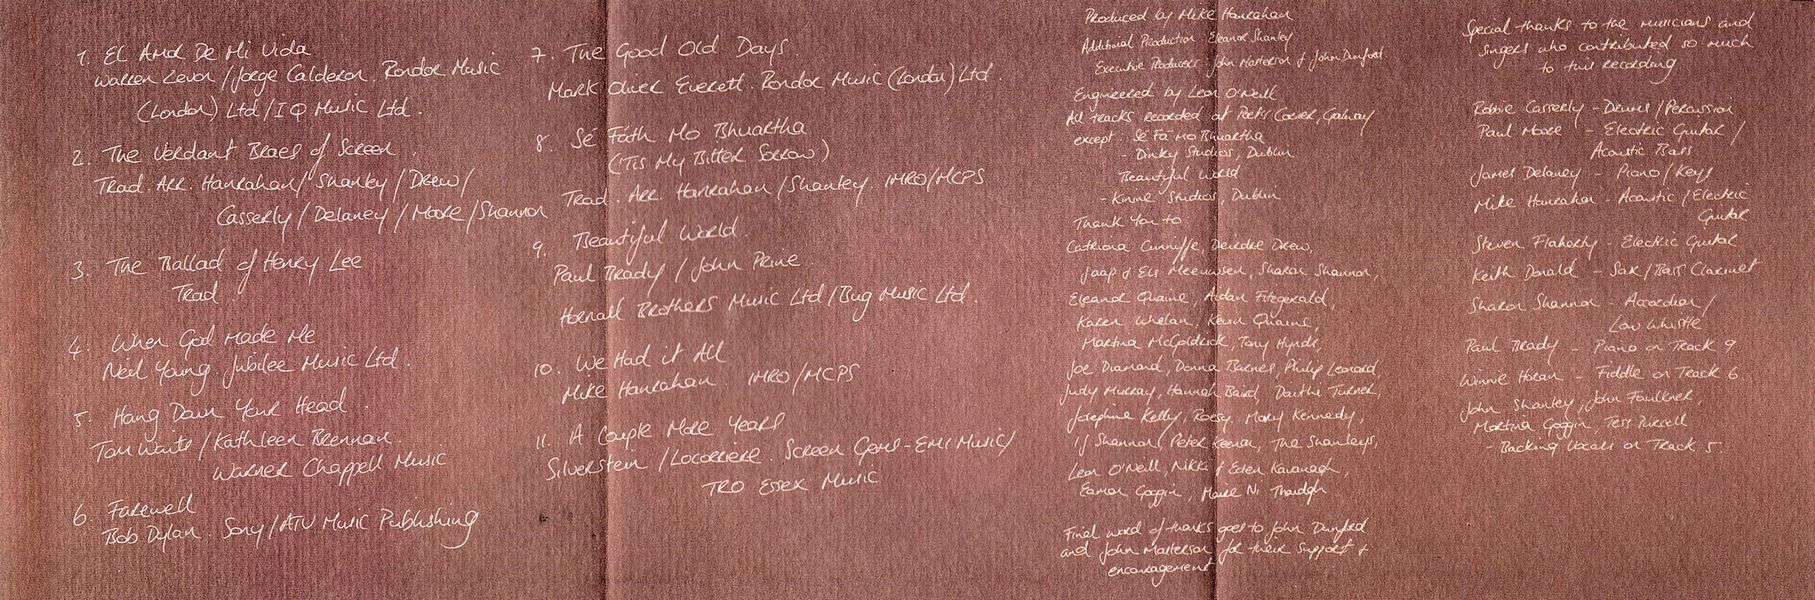 1. El Amor De Mi Vida
Warren Zevon/Jorge Calderon. Rondor Music
(London) Ltd/IQ Music Ltd.
2. The Verdant Braes of Screen.
Trad. Arr. Hanrahan/Shanley/Drew/
Casserly/Delaney/Moore/Shannon
3. The Ballad of Henry Lee
Trad.
4. When God Made Me
Neil Young. Jubilee Music Ltd.
5. Hang Down Your Head.
Tom Waits/Kathleen Brennan.
Warner Chappell Music
6. Farewell
Bob Dylan. Sony/ATV Music Publishing
7. The Good Old Days.
Mark Oliver Everett. Rondor Music (London) Ltd.
8. Sé Fáth Mo Bhuartha
('Tis My Bitter Sorrow)
Trad. Arr. Hanrahan/Shanley. IMRO/MCPS
9. Beautiful World.
Paul Brady/John Prine
Hornall Brothers Music Ltd/Bug Music Ltd.
10. We Had it All
Mike Hanrahan IMRO/MCPS
11. A Couple More Years
Silverstein/Locorriere. Screen Gems-EMI Music/
TRO Essex Music
Produced by Mike Hanrahan
Additional Production Eleanor Shanley
Executive Producers John Masterson & John Dunford
Engineered by Leon O'Neill
All tracks recorded at Poets Corner, Galway
except. Sé Fá Mo Bhuartha
- Dinky Studios, Dublin
Beautiful World
- Kinine Studios, Dublin
Thank You to
Catriona Cunniffe, Deirdre Drew,
Jaap & Els Meeuwsen, Sharon Shannon,
Eleanor Quaine, Aidan Fitzgerald,
Karen Whelan, Kevin Quaine,
Martina McGoldrick, Tony Hynds,
Joe Diamond, Donna Barnes, Philip Leonard,
Judy Murray, Hannah Baird, Turner,
Josephine Kelly, Roesy, Mary Kennedy,
IJ Shannon, Peter Keenan, The Shanleys,
Leon O'Neill, Nikki & Eden Kavanagh,
Eamon Goggin, Maire Ni
Final word of thanks goes to John Dunford
and John Masterson for their support &
encouragement
Special thanks to the musicians and
singers who contributed so much
to this recording
Robbie Casserly - Drums/Percussion
Paul Moore - Electric Guitar/
Acoustic Bass
James Delaney - Piano/Keys
Mike Hanrahan - Acoustic/Electric
Guitar
Steven Flaherty - Electric Guitar
Keith Donald - Sax/Bass Clarinet
Sharon Shannon - Accordian/
Low Whistle
Paul Brady - Piano on Track 9.
Winnie Horan - Fiddle on Track 6.
John Shanley, John Faulkner,
Martina Goggin, Tess Purcell
- Backing Vocals on Track 5.